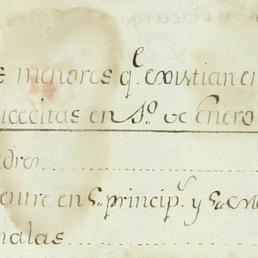 s menores q.e existian en
icecitas en 1.o de Enero
dres
entre en S. princip.s y S.
malas